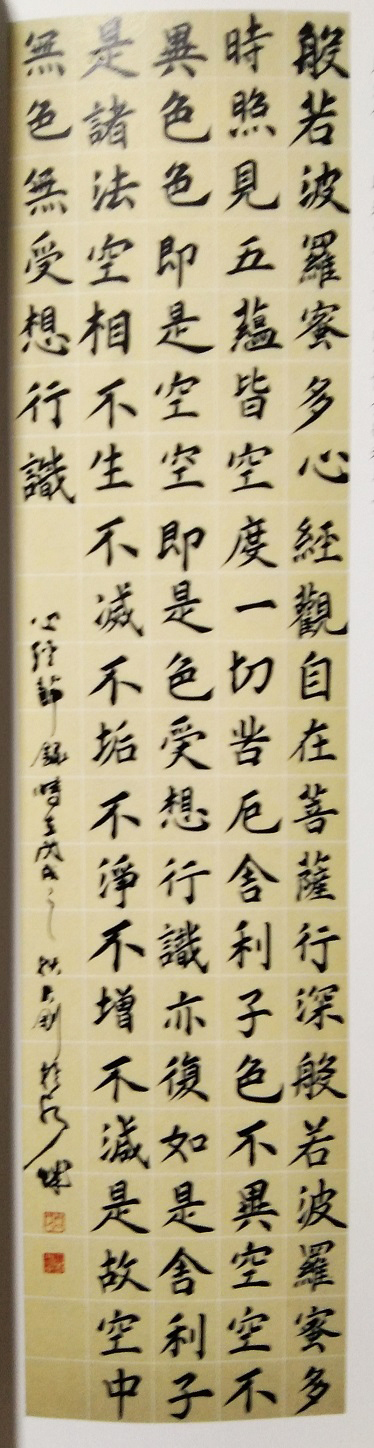 般若波羅蜜多心經觀自在菩薩行深般若波羅蜜多
時照見五蘊皆空度一切苦厄舍利子色不異空空不
異色色即是空空即是色受想行識亦復如是舍利子
是諸法空相不生不滅不垢不淨不增不減是故空中
無色無受想行識
心經節錄時在戊戌之秋